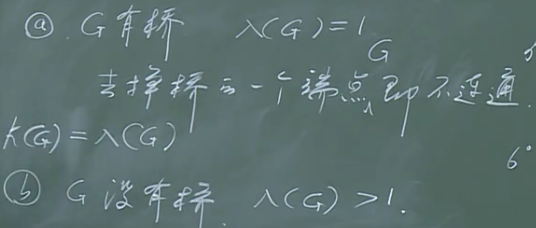 ⓐ. G有桥 λ(G)=1
去掉桥的一个端点,G即不连通.
K(G)=λ(G)
ⓑ G没有桥. λ(G)>1.
6°